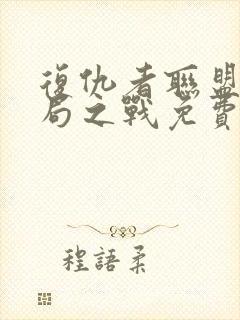 復仇者聯盟
局之戰免費
程語柔